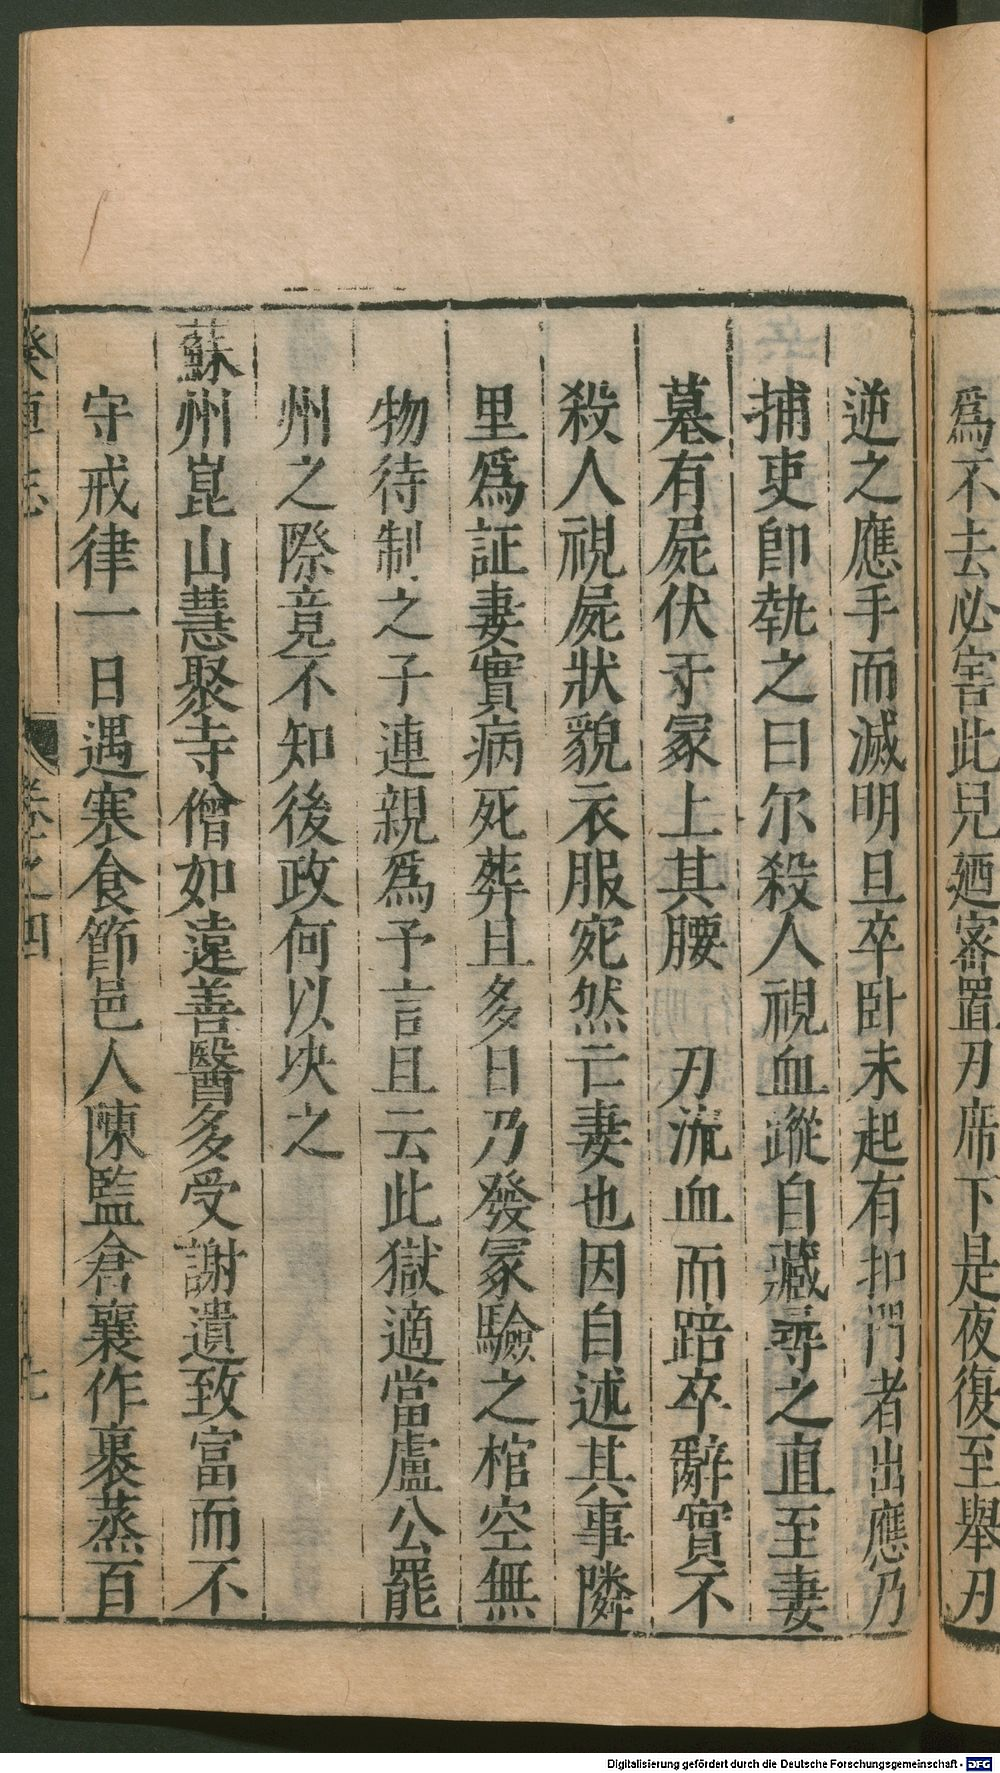 爲不去必害此兒廼密置刃席下是夜復至舉刃
逆之應手而滅明旦卒卧未起有扣門者出應乃
捕吏卽執之曰尔殺人視血蹤自藏尋之直至妻
墓有屍伏于冢上其腰 刃流血而踣卒辭實不
殺人視屍狀貌衣服宛然亡妻也因自述其事隣
里爲証妻實病死葬且多日乃發冢驗之棺空無
物待制之子連親爲予言且云此獄適當盧公罷
州之際竟不知後政何以决之
蘇州崑山慧聚寺僧如遠善醫多受謝遺致富而不
守戒律一日遇寒食節邑人陳監倉襄作裹蒸百
睽車志 卷之四 七
Digitalisierung gefördert durch die Deutsche Forschungsgemeinschaft - DFG